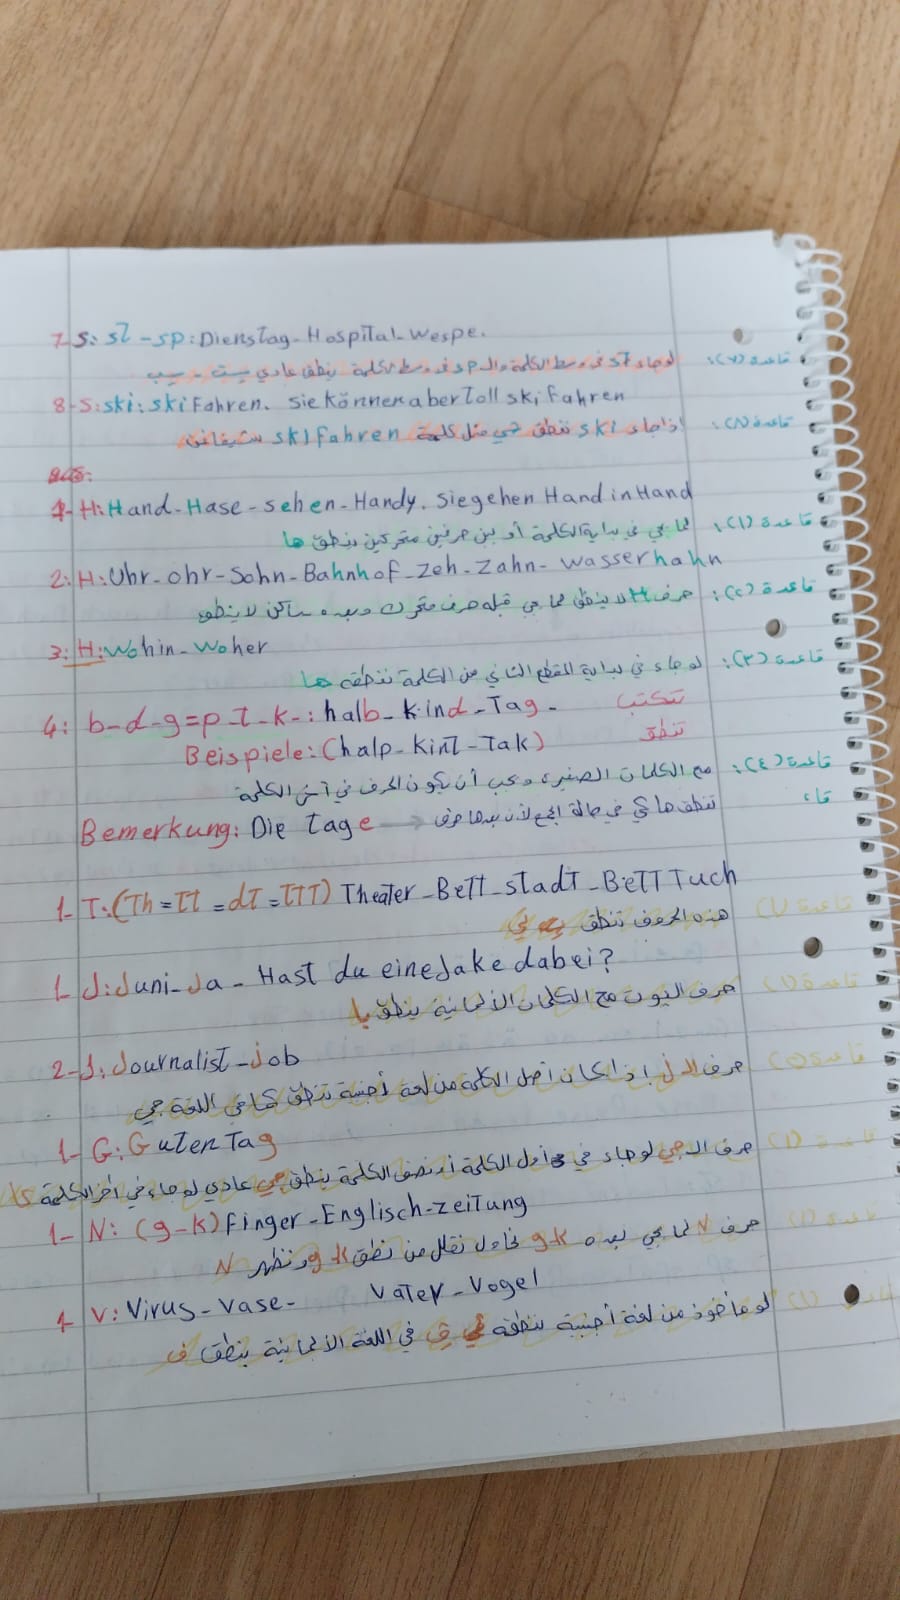 7-S: st-sp: Dienstag-Hospital-Wespe.
قاعدة (٧): لو جاء st في وسط الكلمة والـ sp في وسط الكلمة ينطق عادي ست - سب
8-S: ski: ski Fahren. Sie können aber toll ski fahren
قاعدة (٨): إذا جاء ski تنطق شي مثل كلمة ski fahren شيفاغن
1- H: Hand-Hase-sehen-Handy. Sie gehen Hand in Hand
قاعدة (١): لما يجي في بداية الكلمة أو بين حرفين متحركين ينطق ها
2: H: Uhr-ohr-Sohn-Bahnhof-Zeh-Zahn-Wasserhahn
قاعدة (٢): حرف H لا ينطق لما يجي قبله حرف متحرك وبعده ساكن لا ينطق
3: H: Wohin-Woher
قاعدة (٣): لو جاء في بداية المقطع الثاني من الكلمة ننطقه ها
4: b-d-g=p-t-k-: halb-kind-Tag- تكتب
Beispiele: (halp-kint-Tak) تنطق
قاعدة (٤): مع الكلمات الصغيره ويجب أن يكون الحرف في آخر الكلمة
Bemerkung: Die Tage → تنطق هاكي في حالة الجمع لأن بعدها حرف
1- T: (Th=tt=dt=ttt) Theater-Bett-stadt-BettTuch
قاعدة (١) هذه الحروف تنطق تي
1- J: Juni-Ja- Hast du eine Jake dabei?
قاعدة (١) حرف اليوت مع الكلمات الألمانية ينطق يا
2-J: Journalist-Job
قاعدة (٢) حرف الـ J إذا كان أصل الكلمة من لغة أجنبية تنطق كما هي اللغة جي
1- G: Guten Tag
قاعدة (١) حرف الـ جي لو جاء في أول الكلمة أو نصف الكلمة ينطق جي عادي لو جاء في آخر الكلمة كا
1- N: (g-k) Finger-Englisch-Zeitung
قاعدة (١) حرف N لما يجي بعده g-k نحاول نقلل من نطق g k ونظهر N
1 V: Virus-Vase- Vater-Vogel
(١) لو مأخوذ من لغة أجنبية ننطقه في اللغة الألمانية ينطق ف